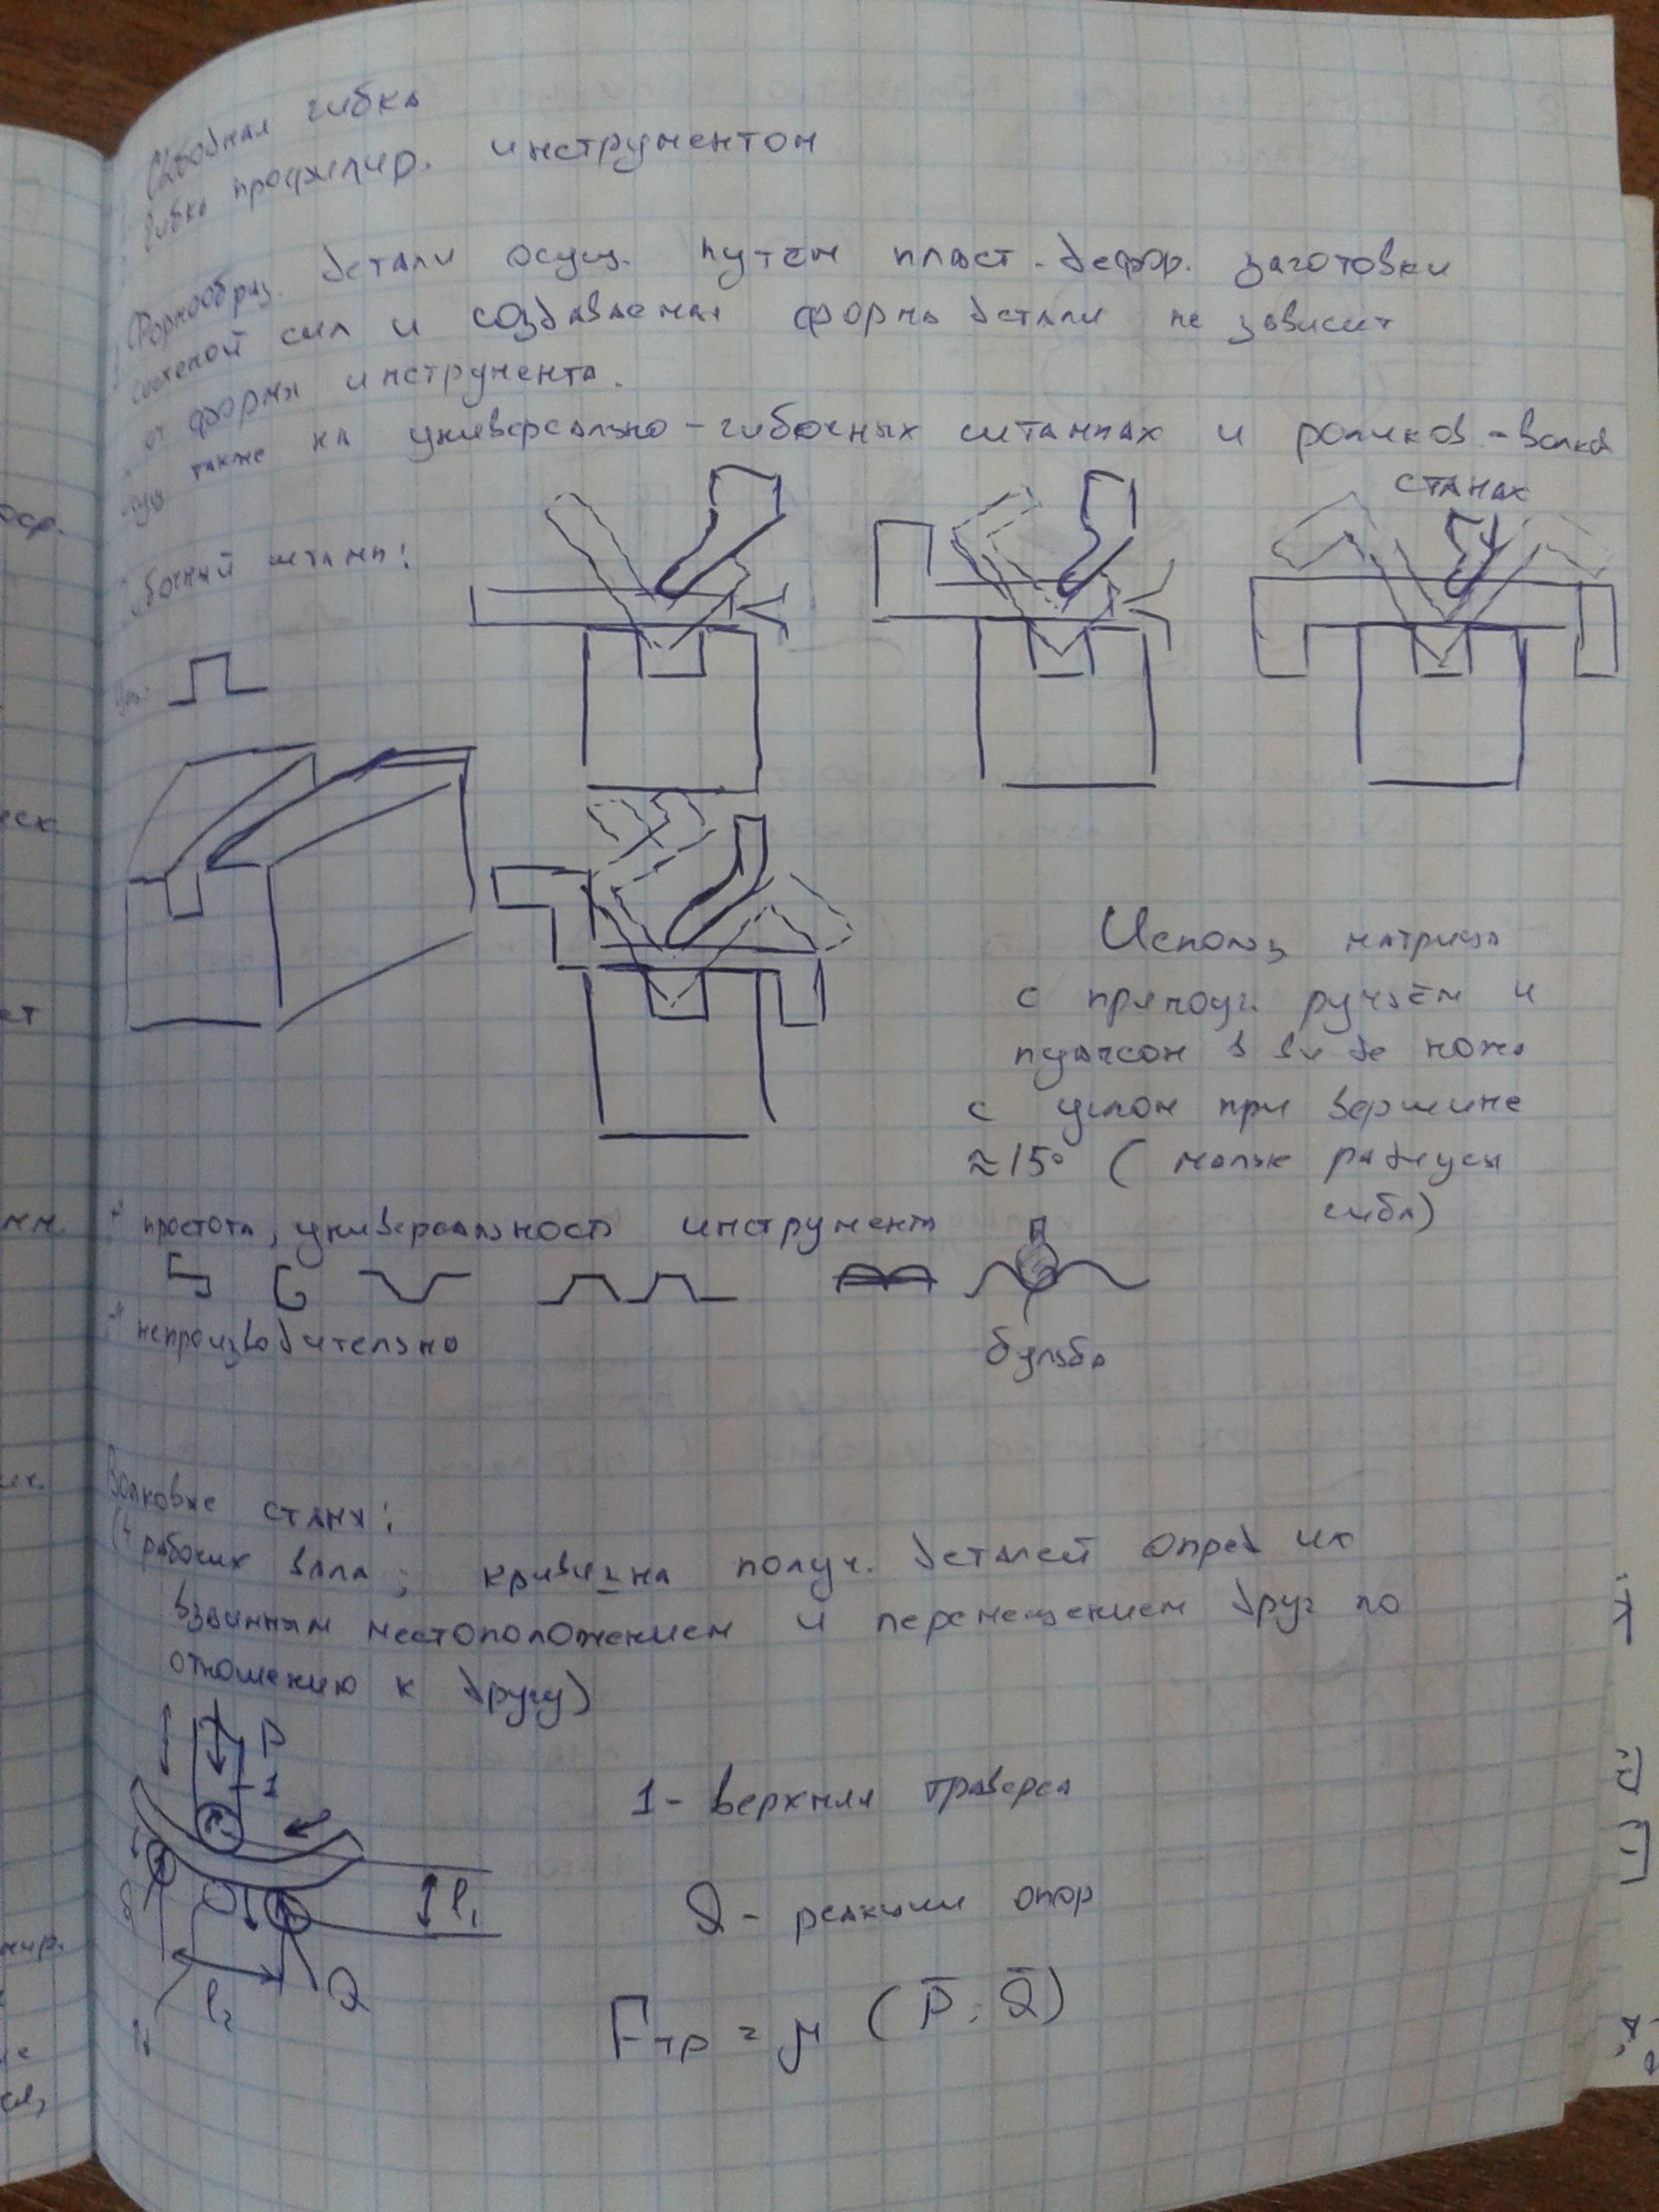 Свободная гибка
Гибка профилир. инструментом
Формообраз. детали осущ. путём пласт. дефор. заготовки
системой сил и создаваемая форма детали не зависит
от формы инструмента.
также на универсально-гибочных штампах и роликов.-валков
станах
бочный штамп:
Использ матрица
с прямоуг. ручьём и
пуансон в виде ножа
с углом при вершине
≈15° (малые радиусы
гибл)
"+" простота, универсальность инструмента
бульба
"-" непроизводительно
Валковые станы:
(4 рабочих вала; кривизна получ. деталей опред их
взаимным местоположением и перемещением друг по
отношению к другу)
P
1
1- верхняя траверса
l₁
Q - реакции опор
l₂
Q
Fтр = μ (P̄; Q̄)